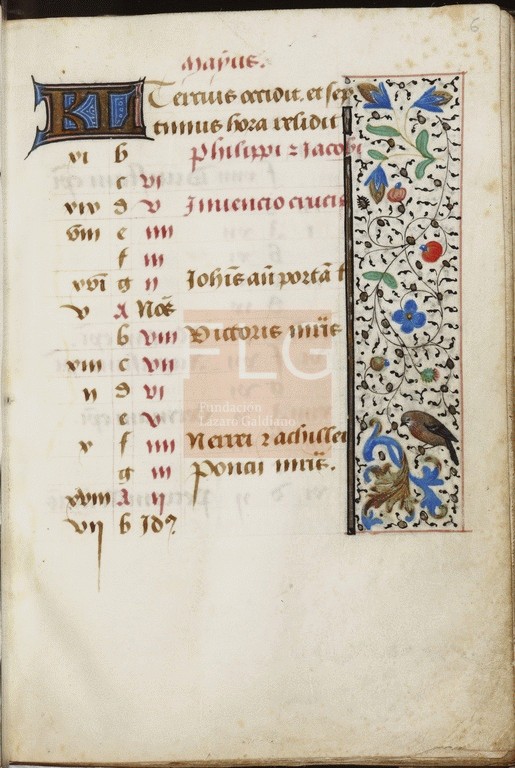 6
Mayus.
KL Tercius occidit. et sep
timus hora relidit
xi b Philippi ⁊ Jacobi
c vi
xix d v Inuencio crucis
viii e iiii
f iii
xvi g ii Iohis an portā l
v A Noē
b viii Victoris mris
xiii c vii
ii d vi
e v
x f iiii Nerei ⁊ achillei
g iii Poncii mris.
xviii A ii
vii b Id9
FLG
Fundación
Lázaro Galdiano